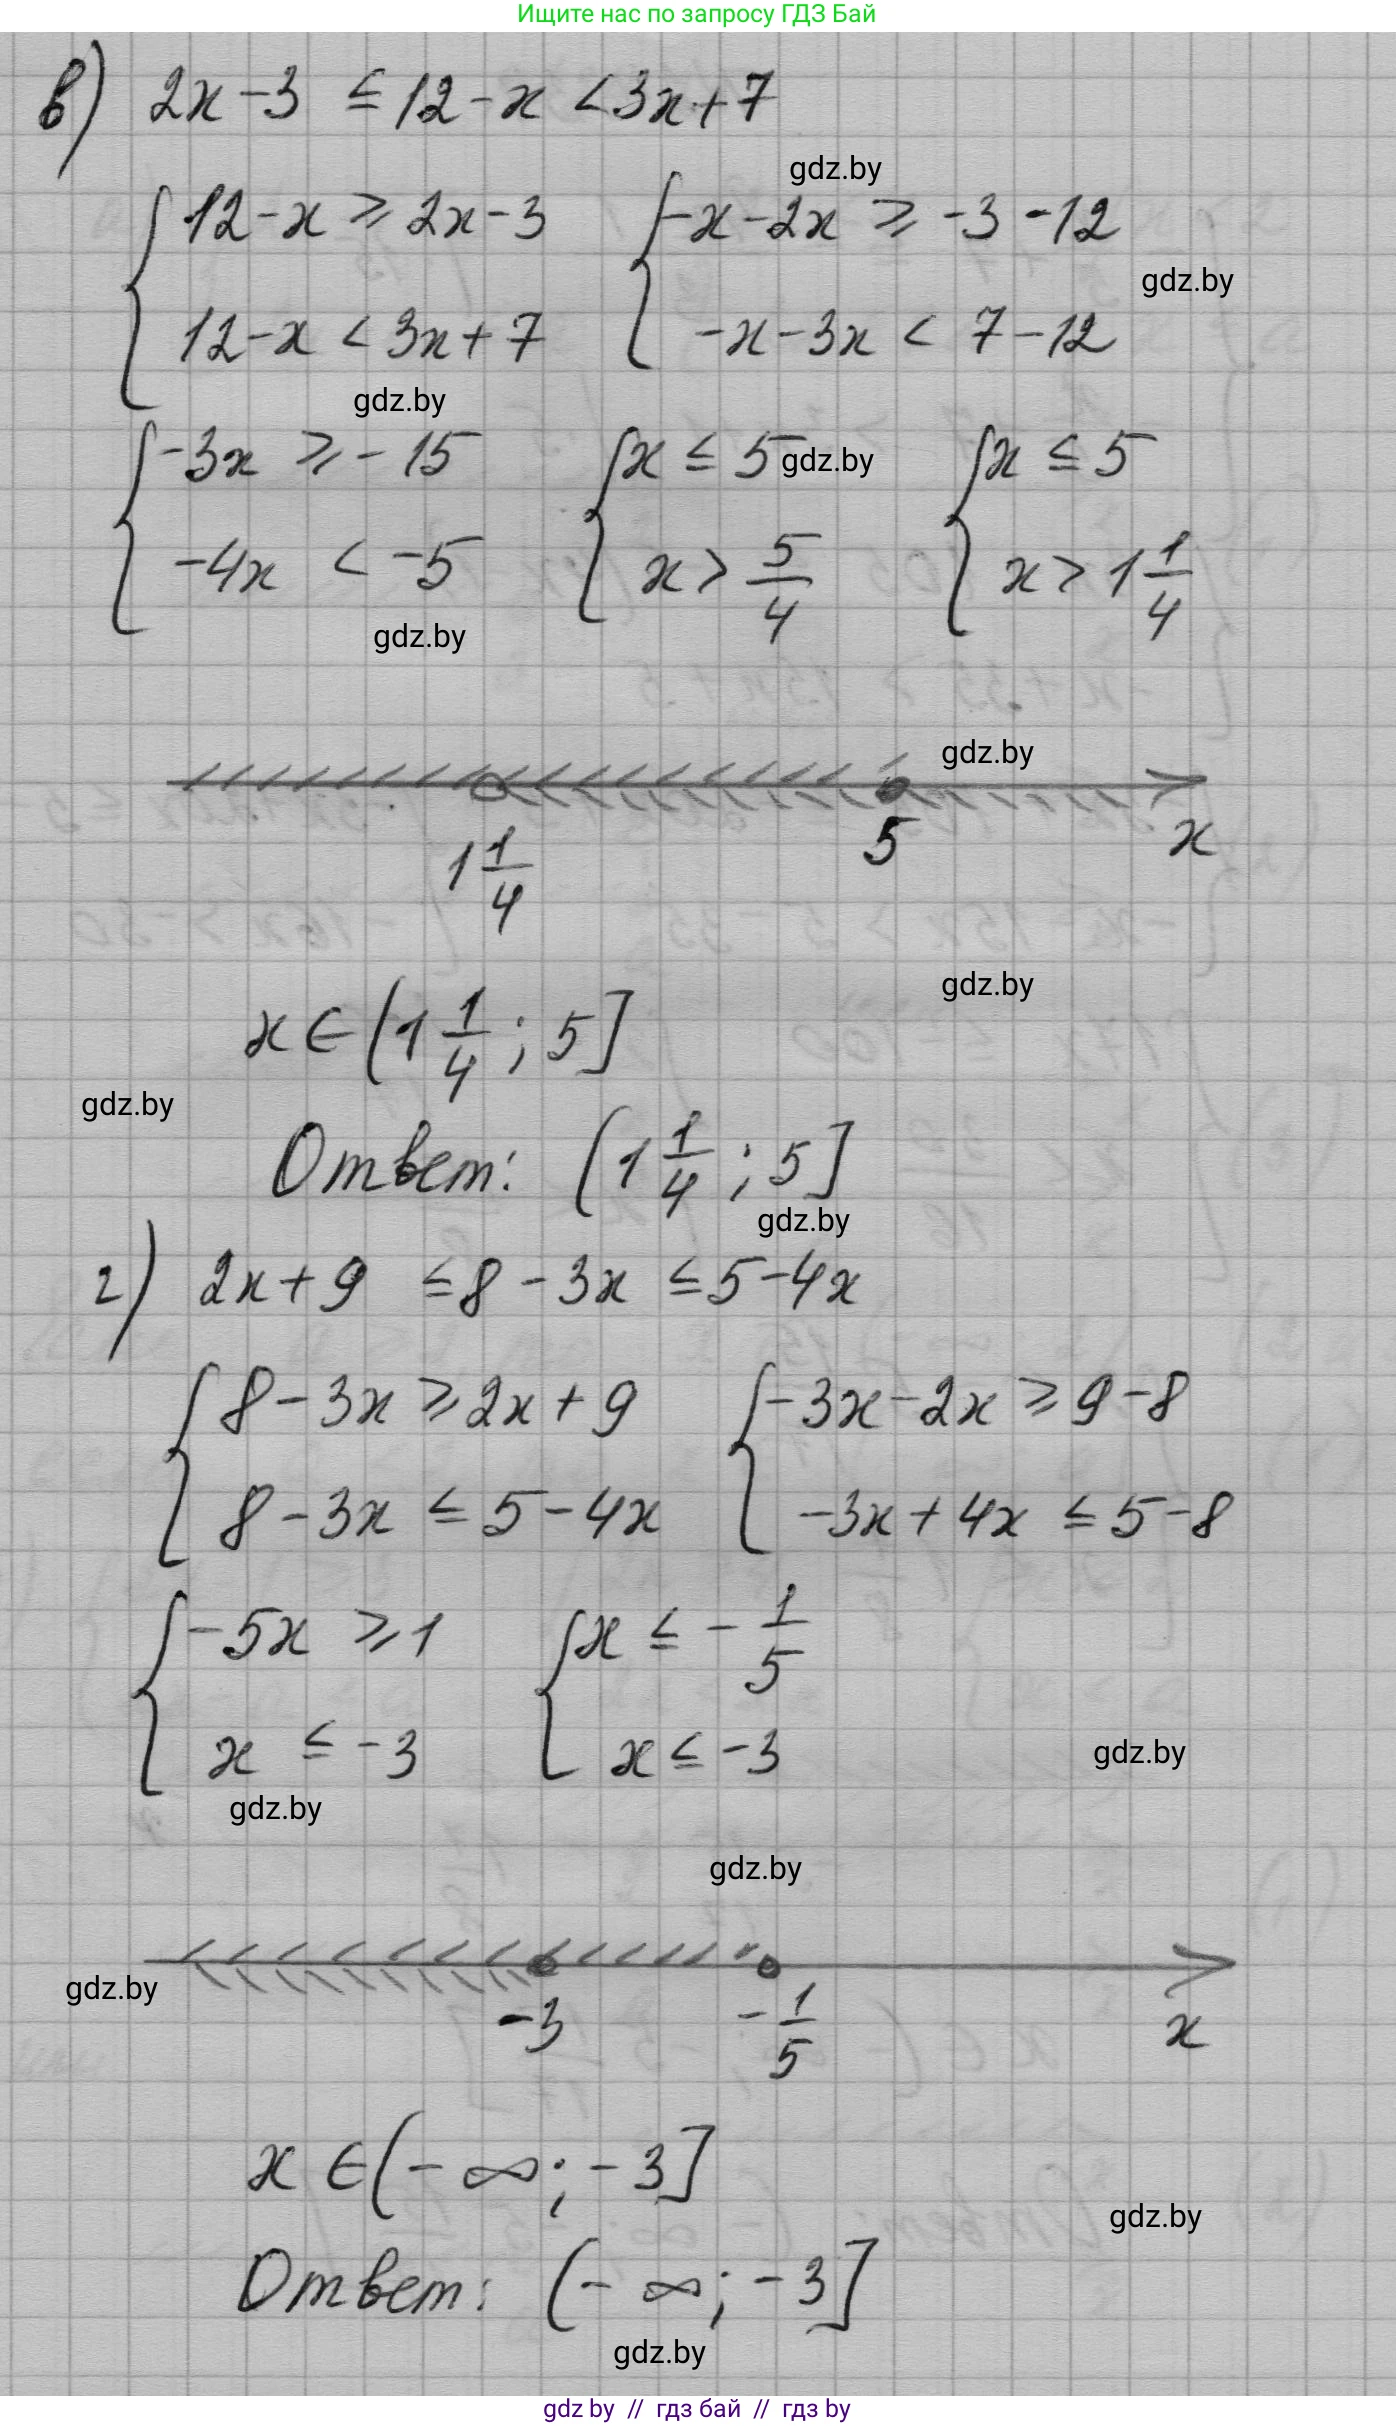 Ищите нас по запросу ГДЗ Бай
в) 2x-3 ≤ 12-x < 3x+7
gdz.by
{ 12-x ≥ 2x-3 { -x-2x ≥ -3-12
gdz.by
12-x < 3x+7 -x-3x < 7-12
gdz.by
{ -3x ≥ -15 { x ≤ 5 gdz.by { x ≤ 5
-4x < -5 x > 5/4 x > 1 1/4
gdz.by
gdz.by
1 1/4 5 x
gdz.by
x ∈ (1 1/4; 5]
gdz.by
Ответ: (1 1/4; 5]
gdz.by
г) 2x+9 ≤ 8-3x ≤ 5-4x
{ 8-3x ≥ 2x+9 { -3x-2x ≥ 9-8
8-3x ≤ 5-4x -3x+4x ≤ 5-8
{ -5x ≥ 1 { x ≤ -1/5
x ≤ -3 x ≤ -3
gdz.by
gdz.by
gdz.by
gdz.by
-3 -1/5 x
x ∈ (-∞; -3]
gdz.by
Ответ: (-∞; -3]
gdz.by
gdz by // гдз бай // гдз by